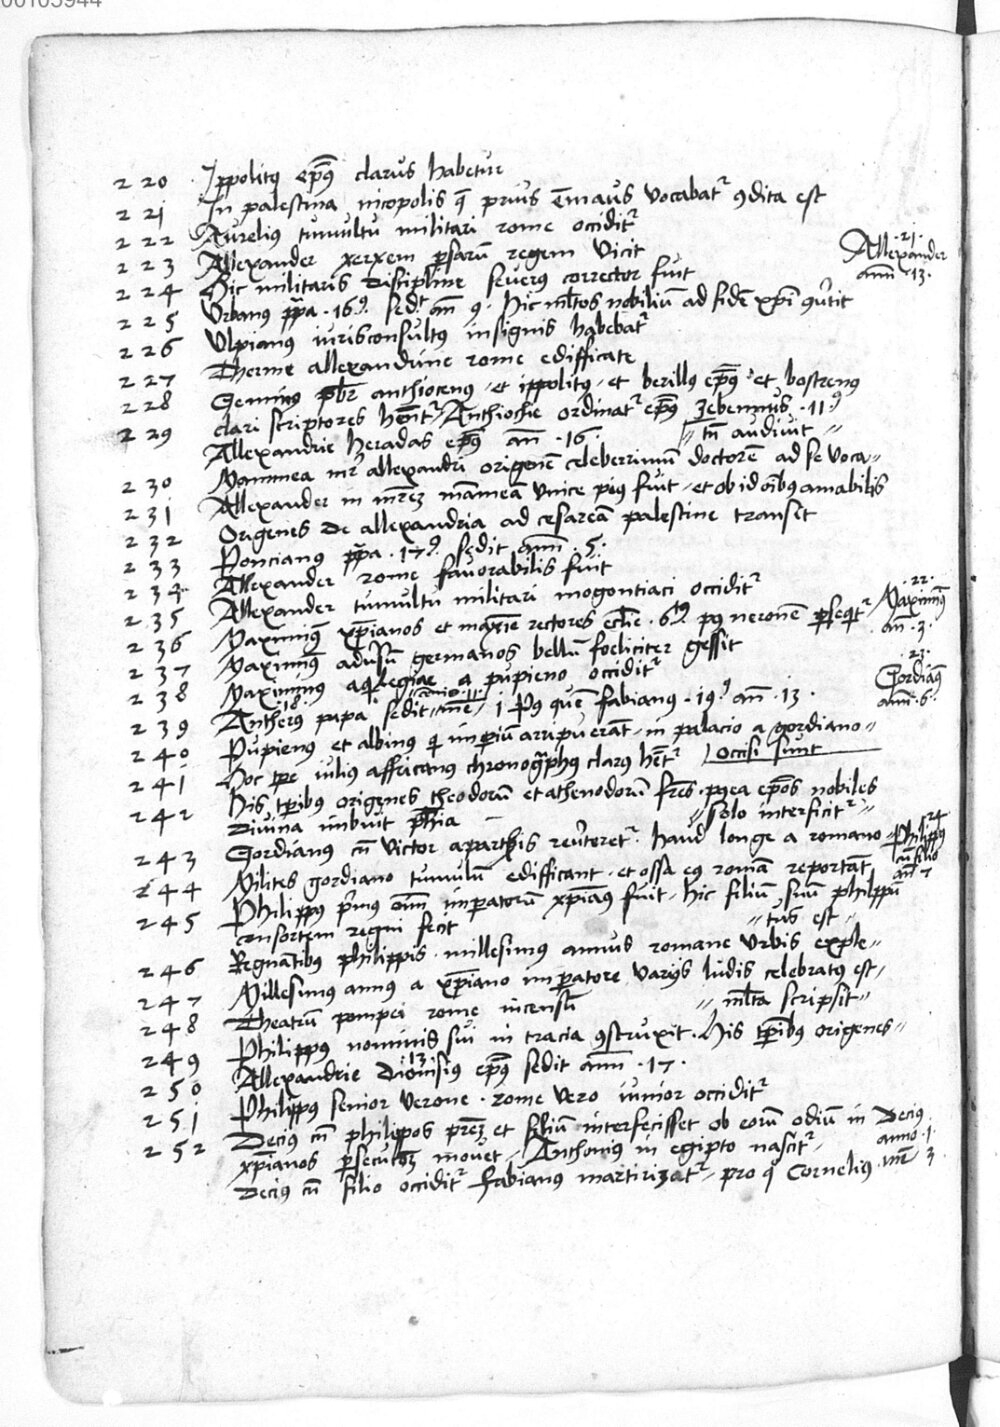 00105944
220 Ippolitꝰ ep̅us clarus habetur
221 In palestina nicopolis q̅ prius E̅maus vocabatͬ ꝯdita est
222 Aurelius tumultu militari rome occiditͬ
223 Allexander xerxem ꝑsaru̅ regem vicit
·21· Allexander ann̅ ·13·
224 Hic militaris discipline severus corrector fuit
225 Urbanus pp̅a ·16ꝰ· sedit an̅ 9· hic ml̅tos nobiliu̅ ad fide̅ xp̅i
226 Ulpianus iurisconsultus insignis habebatͬ
227 Therme allexandrine rome edifficate
228 Geminus pb̅r anthiocenus· et ippolitus· et berillus ep̅us et bostrenus
clari scriptores hen̅tͬ Anthiochie ordinatͬ ep̅us zebennus ·11ꝰ
229 Allexandrie heradas ep̅us an̅ ·16· // tu̅ audivit //
230 Mammea mr̅ allexandri origene̅ celeberrimu̅ doctore̅ ad se voca //
231 Allexander in mr̅eꝫ mamea̅ unice pius fuit· et ob id oib̅us amabilis
232 Origenes de allexandria ad cesarea̅ palestine transit
233 Poncianus pp̅a ·17ꝰ sedit ann̅ ·5·
234 Allexander rome favorabilis fuit
235 Allexander tumultu militari mogontiaci occiditͬ
·22· Maximin9 an̅ ·3·
236 Maximin9 xp̅ianos et maxi̅e rectores ecl̅ie ·6ꝰ pꝰ nerone̅ ꝑseq̅tͬ
237 Maximin9 adu̓su̅ germanos bellu̅ foeliciter gessit
238 Maximinus aqͥlegiae a pupieno occiditͬ
·23· Gordian9 ann̅ ·6·
239 Antherus ·18· papa sedit me̅· 1 Pꝰ que̅ fabianus ·19ꝰ an̅ ·13·
240 Pupienus et albinus qͥ imperiu̅ arripuera̅t· in palacio a gordiano //
241 Hoc tp̅re iulius affricanus chronogͣphus clarus hetͬ occisi sunt
242 His tp̅ribus origenes theodoru̅ et athenodoru̅ fr̅es· ep̅os nobiles
divina imbuit ph̅ia // solo interficitͬ //
243 Gordianus cu̅ victor a parthis reu̓teretͬ· haud longe a romano //
·24· Philippus cu̅ filio an̅ 7
244 Milites gordiano tumulu̅ edifficant· et ossa eꝰ roma̅ reporta̅t
245 Philippus pͥmus om̅m imperatoru̅ xp̅ianus fuit· hic filiu̅ suu̅ philippu̅
consortem regni fecit // tus est //
246 Regna̅tibus philippis· millesimus annus romane urbis exple //
247 Millesimus annus a xp̅iano imperatore varijs ludis celebratus est /
248 Theatru̅ pompei rome incensu̅ // ml̅ta scripsit //
249 Philippus nominis sui in tracia ꝯstruxit· His tp̅ribus origenes //
250 Allexandrie Dionisius ·13· ep̅us sedit ann̅ ·17·
251 Philippus senior verone· rome vero iunior occiditͬ
252 Decius cu̅ philippos preꝫ et filiu̅ interfecisset ob eoru̅ odiu̅ in
xp̅ianos persecutoꝫ movet· Anthonius in egipto nascitͬ
Decius anno ·1· me̅ 3
Decius cu̅ filio occiditͬ fabianus martirizatͬ· pro q̊ Cornelius